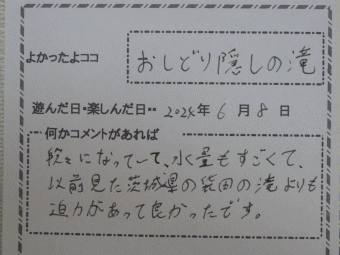 よかったよココ おしどり隠しの滝
遊んだ日・楽しんだ日・・ 2024年 6月 8日
何かコメントがあれば
段々になっていて、水量もすごくて、
以前見た茨城県の袋田の滝よりも
迫力があって良かったです。